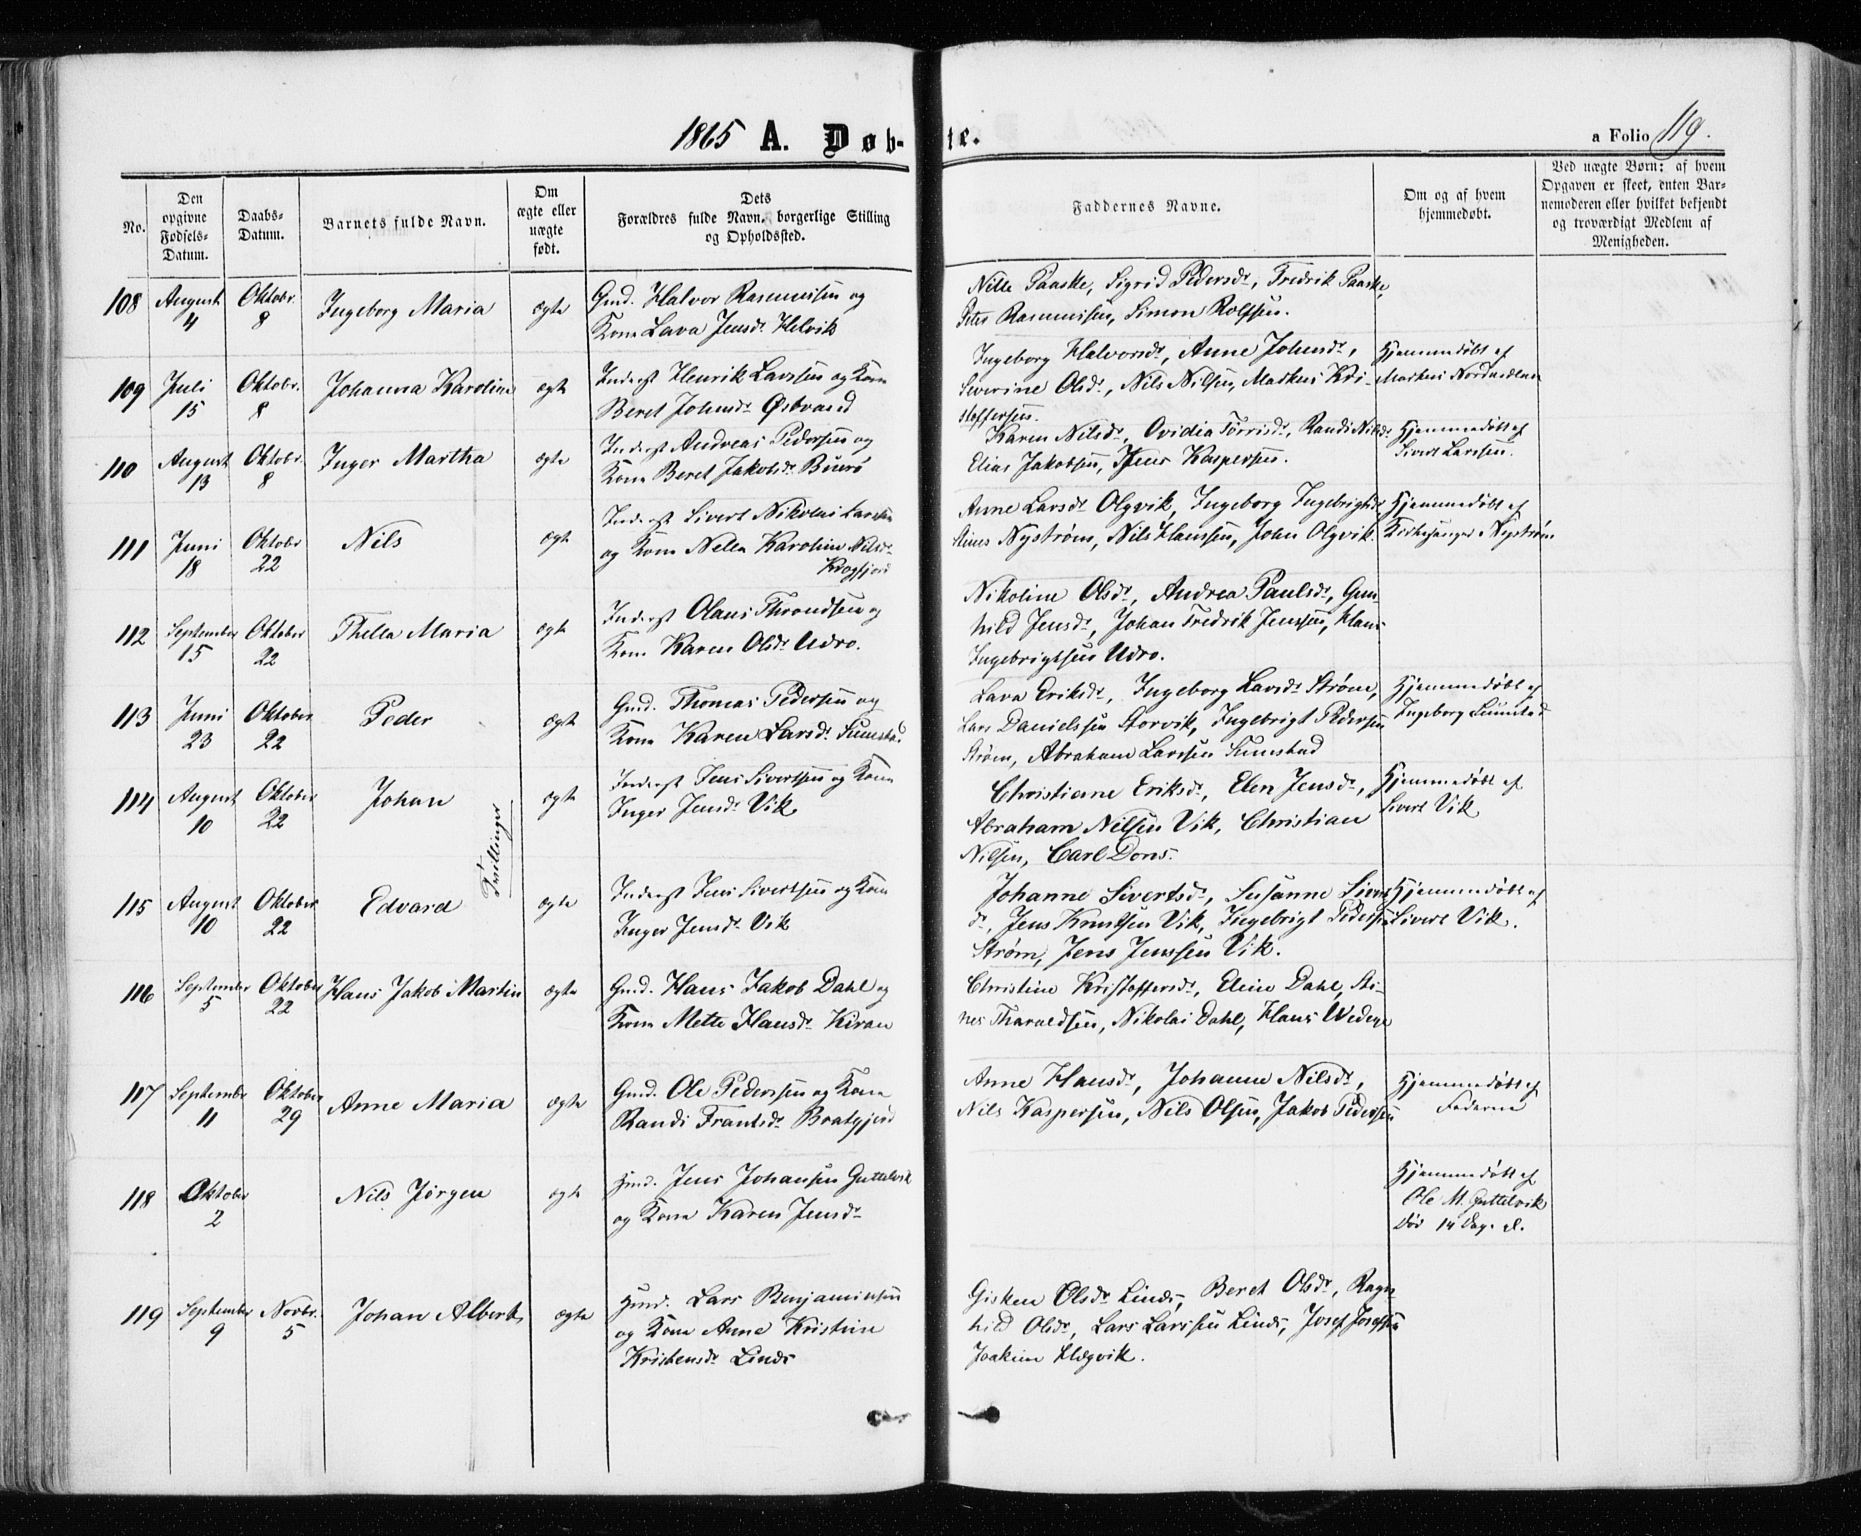 1865 A. Døb-te.
a Folio 119.
No.
Den opgivne Fødsels-Datum.
Daabs-Datum.
Barnets fulde Navn.
Om ægte eller uægte født.
Dets Forældres fulde Navn, borgerlige Stilling og Opholdssted.
Faddernes Navne.
Om og af hvem hjemmedøbt.
Ved uægte Børn: af hvem Opgaven er skeet, enten Barnemoderen eller hvilket bekjendt og troværdigt Medlem af Menigheden.
108 August 4 Oktobr. 8 Ingeborg Maria ægte
Gmd. Halvor Rasmussen og
Kone Lava Jensdr Helvik
Nille Paaske, Sigrid Pedersdr, Fredrik Paaske,
Peter Rasmussen, Simon Rolfsen.
109 Juli 15 Oktobr. 8 Johanna Karoline ægte
Inderst Henrik Larssen og Kone
Beret Johnsdr Østvand
Ingeborg Halvorsdr, Anne Johnsdr,
Severine Olsdr, Nils Nilsen, Markus Kri-
stoffersen.
Hjemmedøbt af
Markus Nordmelan
110 August 13 Oktobr. 8 Inger Martha ægte
Inderst Andreas Pedersen og
Kone Beret Jakobsdr Buurø
Karen Nilsdr, Ovidia Tørrisdr, Randi Nilsdr
Elias Jakobsen, Jens Kaspersen.
Hjemmedøbt af
Sivert Larssen.
111 Juni 18 Oktobr 22 Nils ægte
Inderst Sivert Nikolai Larssen
og Kone Nella Karoline Nilsdr
Krogfjord
Anne Larsdr Olgvik, Ingeborg Ingebrigtsdr
Steines Nystrøm, Nils Hanssen, John Olgvik.
Hjemmedøbt af
Kirkesanger Nystrøm
112 September 15 Oktober 22 Thella Maria ægte
Inderst Olaus Throndsen og
Kone Karen Olsdr Udro.
Nikoline Olsdr, Andrea Paulsdr, Gun-
hild Jensdr, Johan Fredrik Jenssen, Hans
Ingebrigtsen Udro.
113 Juni 23 Oktober 22 Peder ægte
Gmd. Thomas Pedersen og
Kone Karen Larsdr Sumstad
Lava Eriksdr, Ingeborg Larsdr Strøm,
Lars Danielssen Storvik, Ingebrigt Pedersen
Strøm, Abraham Larssen Sumstad
Hjemmedøbt af
Ingeborg Sumstad
114 August 10 Oktober 22 Johan ægte
Inderst Jens Sivertsen og Kone
Inger Jensdr Vik
Christianne Eriksdr, Elen Jensdr,
Abraham Nilsen Vik, Christian
Nilsen, Carl Dons.
Hjemmedøbt af
Sivert Vik
Tvillinger
115 August 10 Oktober 22 Edvard ægte
Inderst Jens Sivertsen og Kone
Inger Jensdr Vik
Johanne Sivertsdr, Susanne Sivert
dr, Jens Knutsen Vik, Ingebrigt Pedersen
Strøm, Jens Jenssen Vik.
Hjemmedøbt af
Sivert Vik.
116 September 5 Oktober 22 Hans Jakob Martin ægte
Gmd. Hans Jakob Dahl og
Kone Mette Hansdr Kiran
Christine Kristoffersdr, Eline Dahl, Sti-
nes Tharaldsen, Nikolai Dahl, Hans Wedege
117 September 11 Oktober 29 Anne Maria ægte
Gmd. Ole Pederssen og Kone
Randi Frantsdr Bratgjerd
Anne Hansdr, Johanne Nilsdr,
Nils Kaspersen, Nils Olsen, Jakob Pedersen
Hjemmedøbt af
Faderen
118 Oktober 2 Nils Jørgen ægte
Gmd. Jens Johansen Guttelvik
og Kone Karen Jensdr
Hjemmedøbt af
Ole M. Guttelvik
Død 14 Dag. gl.
119 September 9 Novbr. 5 Johan Albert ægte
Gmd. Lars Benjaminsen
og Kone Anne Kristine
Kristensdr Linds
Gisken Olsdr Linds, Beret Olsdr, Ragn-
hild Olsdr, Lars Larssen Linds, Josef Josefsen
Joakim Hægvik.